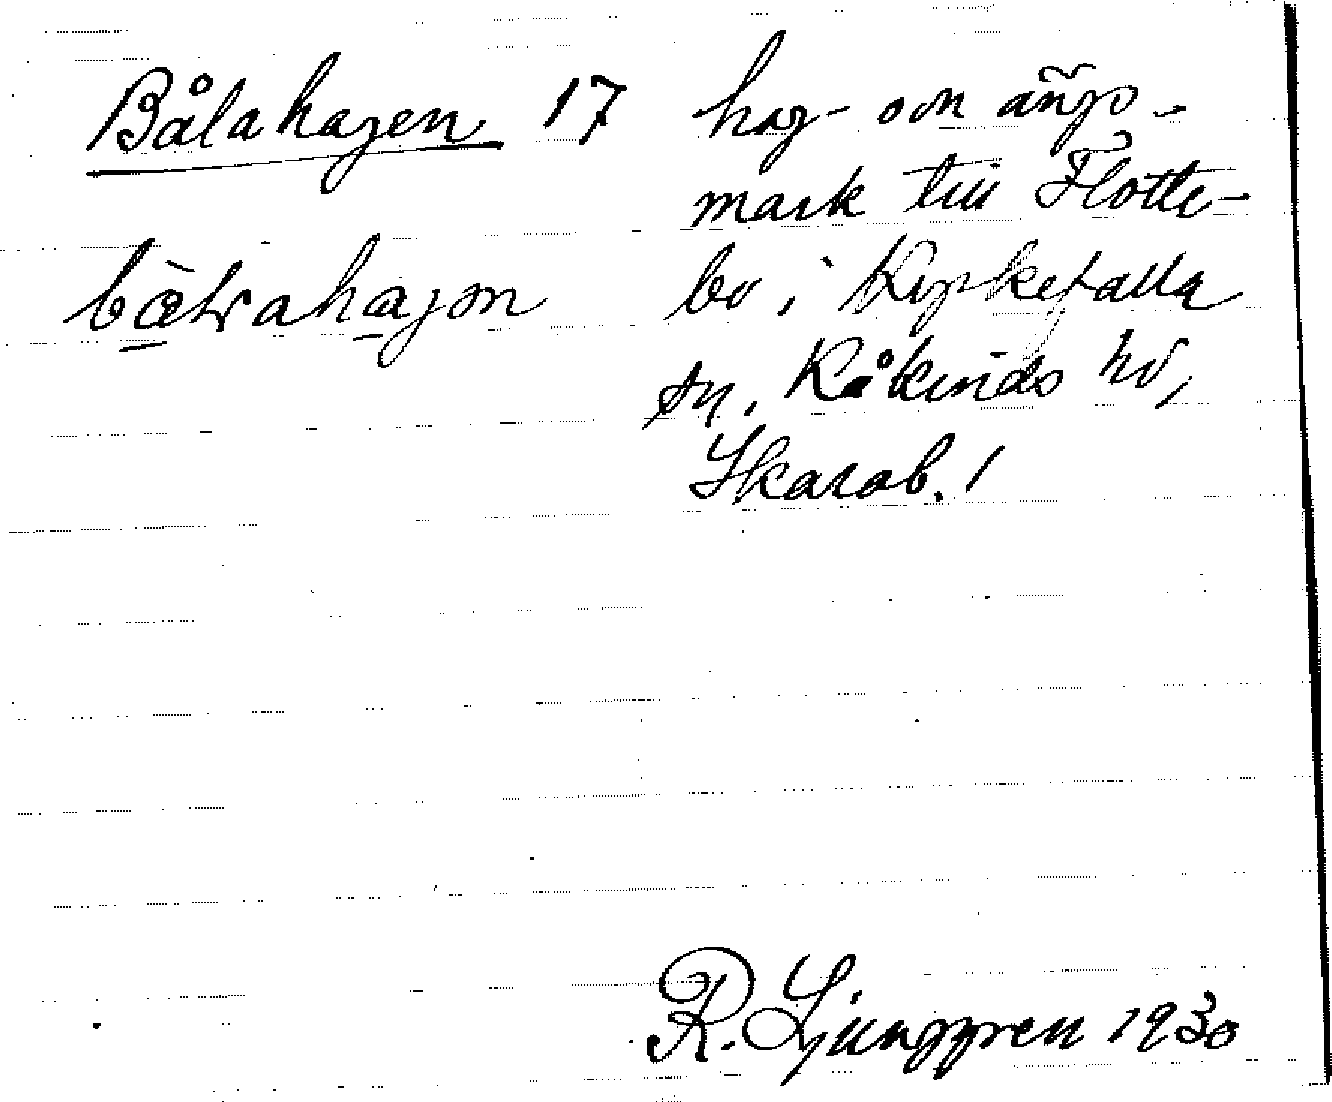 Bålahagen 17 hag- och ängs-
mark till Flotte-
bo i Kyrkefalla
sn, Kåkinds hd,
Skarab. l
R. Ljunggren 1930